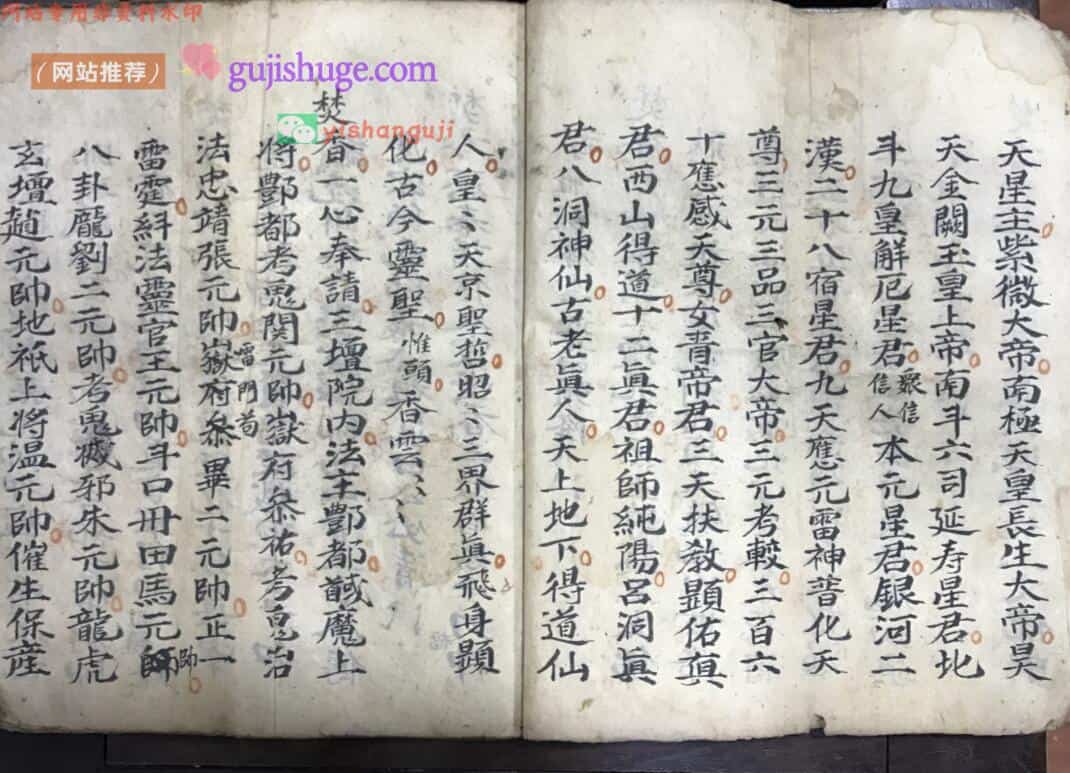 天星主紫微大帝南極天皇長生大帝昊
天金闕玉皇上帝南斗六司延寿星君北
斗九皇解厄星君眾信信人本元星君銀河二
漢二十八宿星君九天應元雷神普化天
尊三元三品三官大帝三元考較三百六
十應感天尊女青帝君三天扶教顕佑真
君西山得道十二眞君祖師純陽呂洞眞
君八洞神仙古老眞人天上地下得道仙
人皇〻天京聖哲昭〻三界群眞飛身顕
化古今靈聖惟頭香雲〻〻
焚香一心奉請三壇院内法主酆都馘魔上
将酆都考鬼関元帥嶽府叅祐考鬼治
法忠靖張元帥嶽府叅畢二元帥正一
雷門苟
雷霆糾法靈官王元帥斗口冊田馬元帥
帥
八卦龐劉二元帥考鬼馘邪朱元帥龍虎
玄壇趙元帥地祇上将温元帥催生保産
网站专用非资料水印
（网站推荐）
gujishuge.com
yishanguji